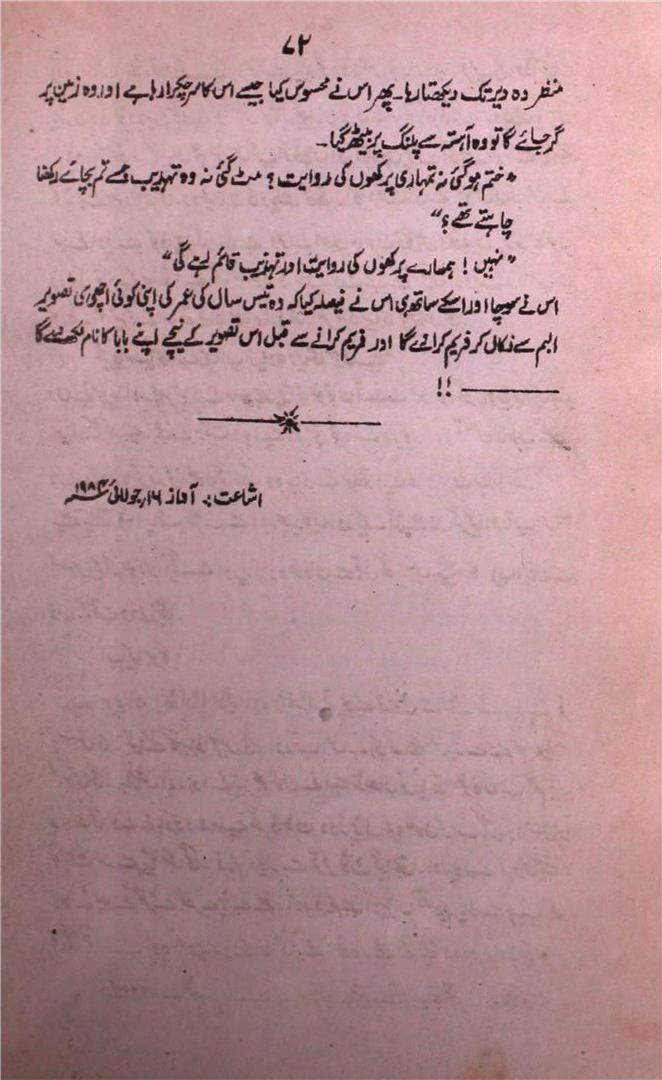 ۷۲
منظر وہ دیر تک دیکھتا رہا۔ پھر اس نے محسوس کیا جیسے اس کا سر چکرا رہا ہے اور وہ زمین پر
گر جائے گا تو وہ آہستہ سے پلنگ پر بیٹھ گیا۔
"ختم ہو گئی نہ تمہاری پرکھوں کی روایت؟ مٹ گئی نہ وہ تہذیب جسے تم بچائے رکھنا
چاہتے تھے؟"
"نہیں! ہمارے پرکھوں کی روایت اور تہذیب قائم رہے گی"
اس نے سوچا اور اسکے ساتھ ہی اس نے فیصلہ کیا کہ وہ تیس سال کی عمر کی اپنی کوئی اچھی سی تصویر
البم سے نکال کر فریم کرائے گا اور فریم کرانے سے قبل اس تصویر کے نیچے اپنے بابا کا نام لکھ دے گا
——— !!
اشاعت:۔ آغاز ۱۶ جولائی ۱۹۸۴ء